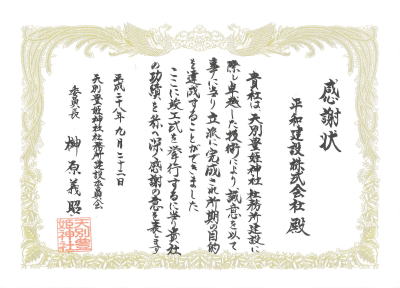 感謝状
平和建設株式会社 殿
貴社は天別豊姫神社社務所建設に
際し卓越した技術により誠意を以て
事に当り立派に完成され所期の目的
を達成することができました
ここに竣工式を挙行するに当り貴社
の功績を称へ深く感謝の意を表します
平成二十八年九月二十二日
天別豊姫神社社務所建設委員会
委員長 榊原義昭
天別豊
姫神社